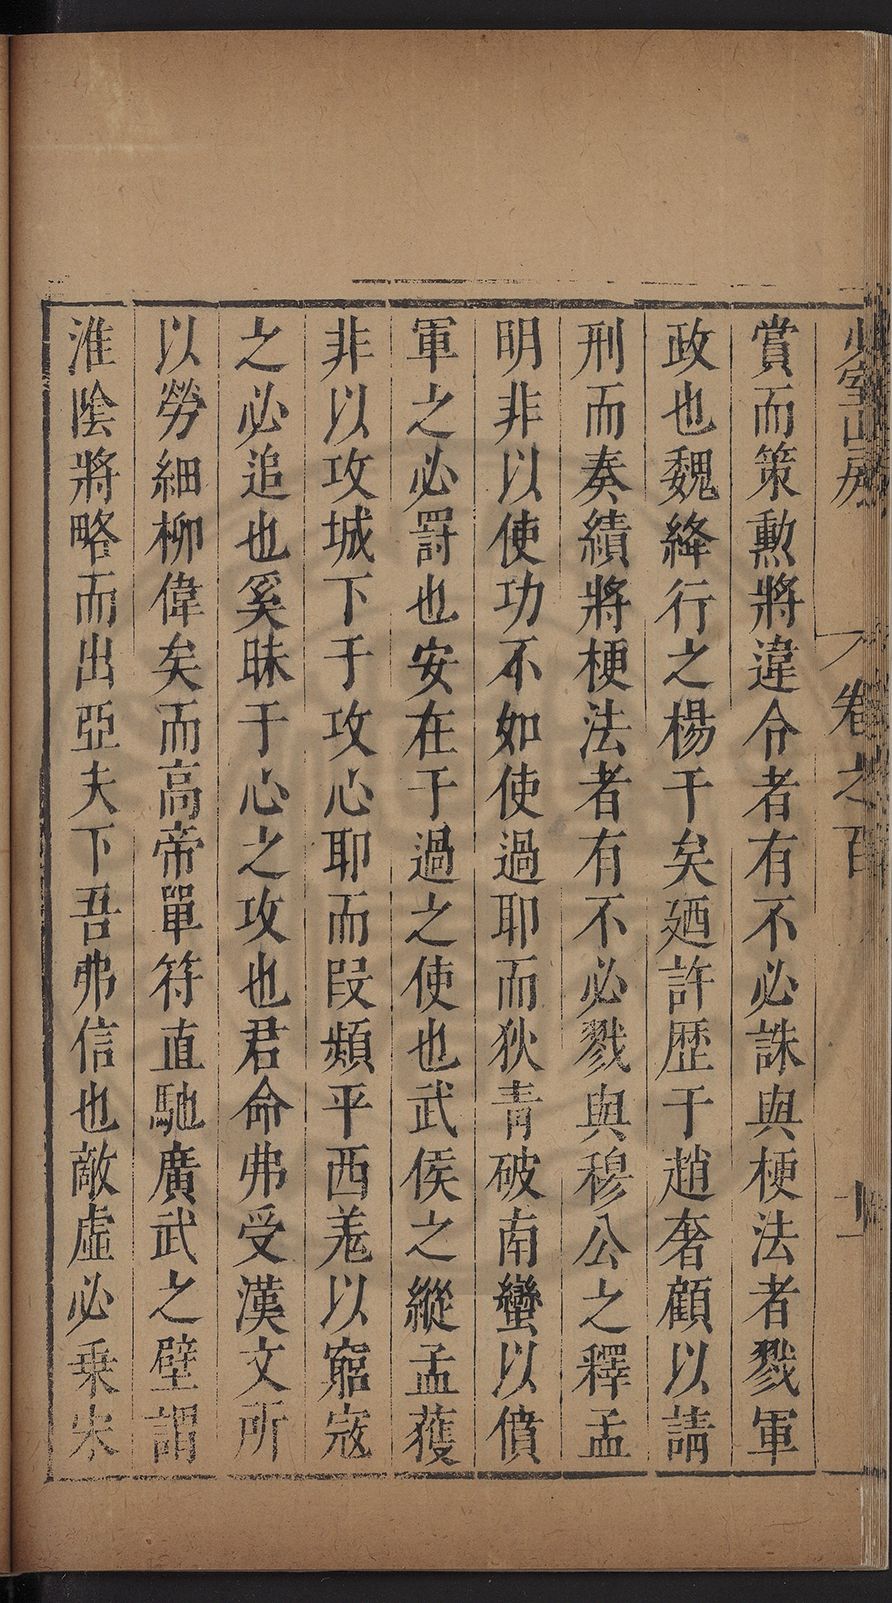 少室山房 卷之百 十一
賞而策勲將違令者有不必誅與梗法者戮軍
政也魏絳行之楊干矣廼許歴于趙奢顧以請
刑而奏績將梗法者有不必戮與穆公之釋孟
明非以使功不如使過耶而狄青破南蠻以僨
軍之必罸也安在于過之使也武侯之縱孟獲
非以攻城下于攻心耶而段熲平西羗以窮寇
之必追也奚昧于心之攻也君命弗受漢文所
以勞細柳偉矣而高帝單符直馳廣武之壁謂
淮陰將略而出亞夫下吾弗信也敵虛必乗宋